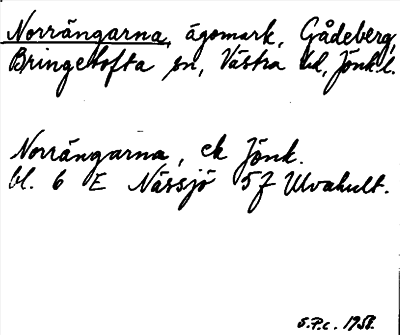 Norrängarna, ägomark, Gådeberg,
Bringetofta sn, Västra hd, Jönk. l.
Norrängarna, ek Jönk.
bl. 6 E Nässjö 5f Ulvahult.
S.P.c. 1951.